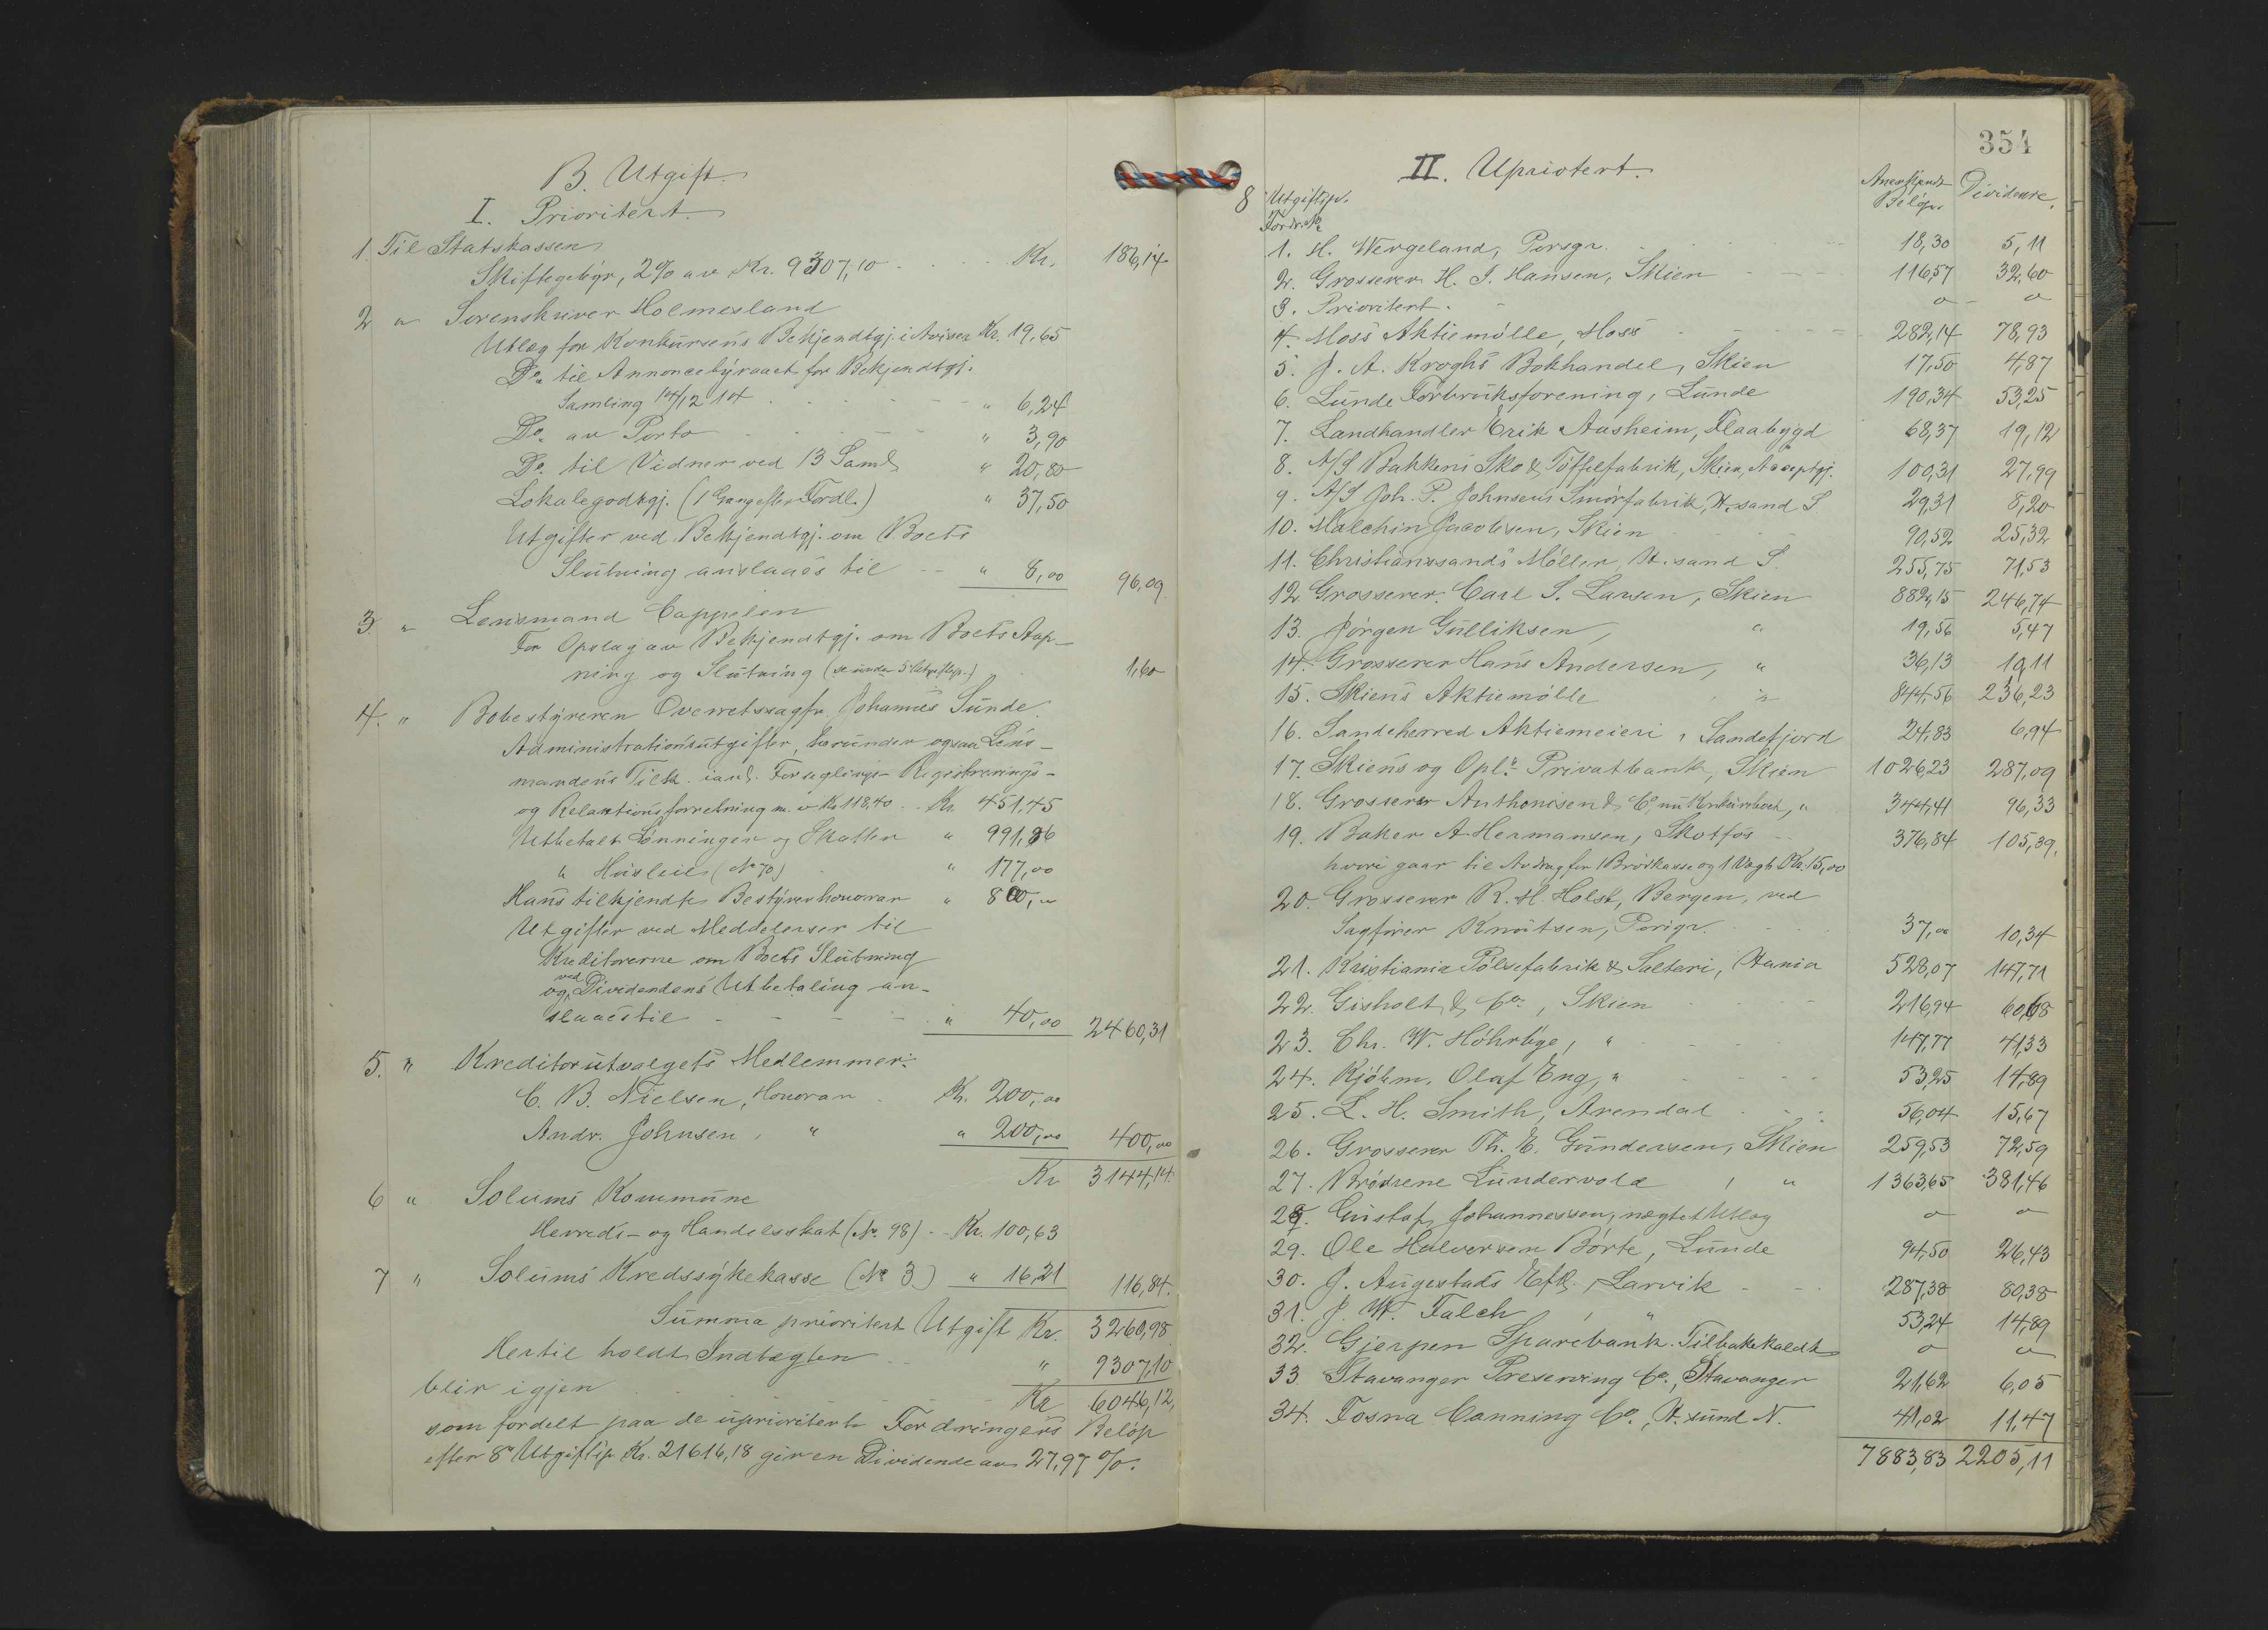 B. Utgift.
I. Prioritert.
1. Til Statskassen
Skiftegebyr, 2% av Kr. 9307,10 . . . . Kr. 186,14
2 " Sorenskriver Holmesland
Utlæg for Konkursens Bekjendtgj. i Aviser Kr. 19,65
Do. til Annoncebyraaet for Bekjendtgj.
Samling 14/12 14 . . . . " 6,24
Do. av Porto . . . " 3,90
Do. til Vidner ved 13 Saml. " 20,80
Lokalegodtgj. (1 Gang efter Fordl.) " 37,50
Utgifter ved Bekjendtgj. om Boets
Slutning anslaaes til - - " 8,00 96,09
3. " Lensmand Cappelen
For Opslag av Bekjendtgj. om Boets Aap-
ning og Slutning (se under 5 Utgiftsp.) 1,60
4. " Bobestyreren Overretssagfr. Johannes Sunde.
Administrationsutgifter, herunder ogsaa Lens-
mandens Tilk. i anl. Forseglings- Registrerings-
og Relaxtionsforretning m. v. Kr 118,40 . . Kr. 451,45
Utbetalt Lønninger og Skatter " 991,86
" Husleie (No 70) " 177,00
Hans tilkjendte Bestyrerhonorar " 800,00
Utgifter ved Meddelelser til
Kreditorerne om Boets Slutning
og ved Dividendens Utbetaling an-
slaaes til - - - - " 40,00 2460,31
5. " Kreditorutvalgets Medlemmer:
C. B. Nielsen, Honorar . Kr. 200,00
Andr. Johnsen, " " 200,00 400,00
Kr 3144,14
6 " Solums Kommune
Herreds- og Handelsskat (No. 98) . - Kr. 100,63
7 " Solums Kredssykekasse (No 3) " 16,21 116,84.
Summa prioritert Utgift Kr. 3260,98
Hertil holdt Indtægten . . " 9307,10
blir igjen . . . . Kr 6046,12,
som fordelt paa de uprioriterte Fordringers Beløp
efter 8de Utgiftsp. Kr. 21616,18 gir en Dividende av 27,97 %.
354
II. Upriotert.
8 Utgiftsp. Anerkjendt Beløp. Dividende.
Fordr. No.
1. H. Wergeland, Porsgr. 18,30 5,11
2. Grosserer H. J. Hansen, Skien 116,57 32,60
3. Prioritert. o o
4. Moss Aktiemølle, Moss 282,14 78,93
5. J. A. Kroghs Bokhandel, Skien 17,50 4,87
6. Lunde Forbruksforening, Lunde 190,34 53,25
7. Landhandler Erik Aasheim, Flaabygd 68,37 19,12
8. A/S Bakkens Sko & Tøffelfabrik, Skien, Acceptgj. 100,31 27,99
9. A/S Joh. P. Johnsens Smørfabrik, K.sand S 29,31 8,20
10. Malchin Jacobsen, Skien 90,52 25,32
11. Christianssands Møller, K.sand S. 255,75 71,53
12 Grosserer Carl S. Larsen, Skien 882,15 246,74
13. Jørgen Gulliksen, " 19,56 5,47
14. Grosserer Hans Andersen, " 36,13 10,11
15. Skiens Aktiemølle " 844,56 236,23
16. Sandeherred Aktiemeieri, Sandefjord 24,83 6,94
17. Skiens og Opl.s Privatbank, Skien 1026,23 287,09
18. Grosserer Anthonisen & Co, nu Konkursbo, " 344,41 96,33
19. Baker A Hermansen, Skotfos 376,84 105,39.
hvori gaar til Avdrag for 1 Brødkasse og 1 Vægt Kr. 15,00
20. Grosserer R. M. Holst, Bergen, ved
Sagfører Knutsen, Porsgr. 37,00 10,34
21. Kristiania Pølsefabrik & Salteri, K.ania 528,07 147,71
22. Gisholt & Co., Skien 216,94 60,68
23. Chr. W. Høhrlyge, " 147,77 41,33
24. Kjøbm. Olaf Eng, " 53,25 14,89
25. L. H. Smith, Arendal 56,04 15,67
26. Grosserer Th. E. Gundersen, Skien 259,53 72,59
27. Brødrene Lundervold, " 1363,65 381,46
28. Gustaf Johannessen, nægtet Utlæg o o
29. Ole Halvorsen Børte, Lunde 94,50 26,43
30. J. Augestads Eftf., Larvik 287,38 80,38
31. J. W. Falch, " 53,24 14,89
32. Gjerpen Sparebank. Tilbakekaldt o o
33 Stavanger Preserving Co., Stavanger 21,62 6,05
34. Fosna Canning Co., K.sund N. 41,02 11,47
7883,83 2205,11